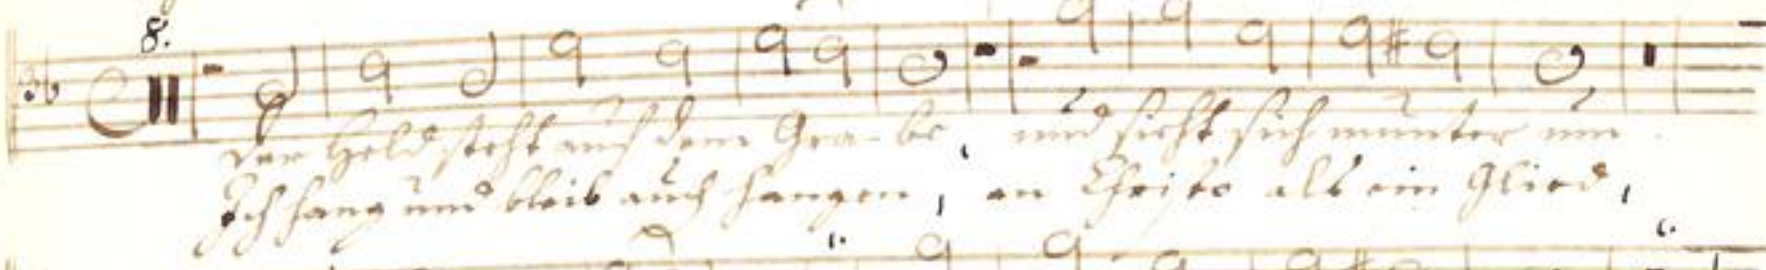 8.
Der Held steht auf dem Gra- be, und sieht sich munter um
Ich hang und bleib auch hangen, an Christo als ein Glied,